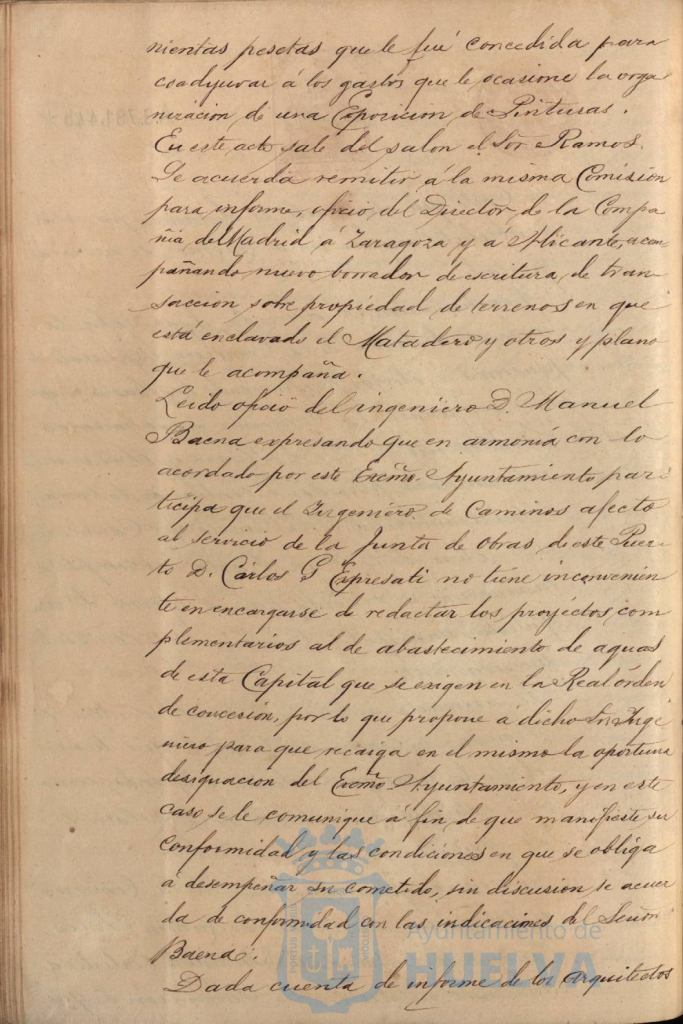 nientas pesetas que le fué concedida para
coadyuvar á los gastos que le ocasione la orga
nización, de una Exposición de Pinturas.
En este acto sale del salon el Sor Ramos.
Se acuerda remitir á la misma Comisión
para informe, oficio, del Director, de la Compa
ñia, de Madrid á Zaragoza y á Alicante, acom
pañando nuevo borrador de escritura, de tran-
sacción sobre propiedad, de terrenos en que
está enclavado el Matadero y otros y plano
que le acompaña.
Leido oficio del ingeniero D. Manuel
Baena expresando que en armonía con lo
acordado por este Excmo. Ayuntamiento par
ticipa que el Ingeniero, de Caminos afecto
al servicio de la Junta de Obras, de este Puer-
to D. Cárlos G Expresati no tiene inconvenien
te en encargarse de redactar los proyectos, com
plementarios al de abastecimiento de aguas
de esta Capital que se exigen en la Real órden
de concesión, por lo que propone á dicho Sr. Inge
niero para que recaiga en el mismo la oportuna
designacion del Excmo. Ayuntamiento, y en este
caso se le comunique á fin, de que manifieste su
conformidad y las condiciones en que se obliga
á desempeñar su cometido, sin discusion se acuer
da de conformidad con las indicaciones del Señor
Baena.
Dada cuenta de informe de los Arquitectos
Ayuntamiento de
HUELVA